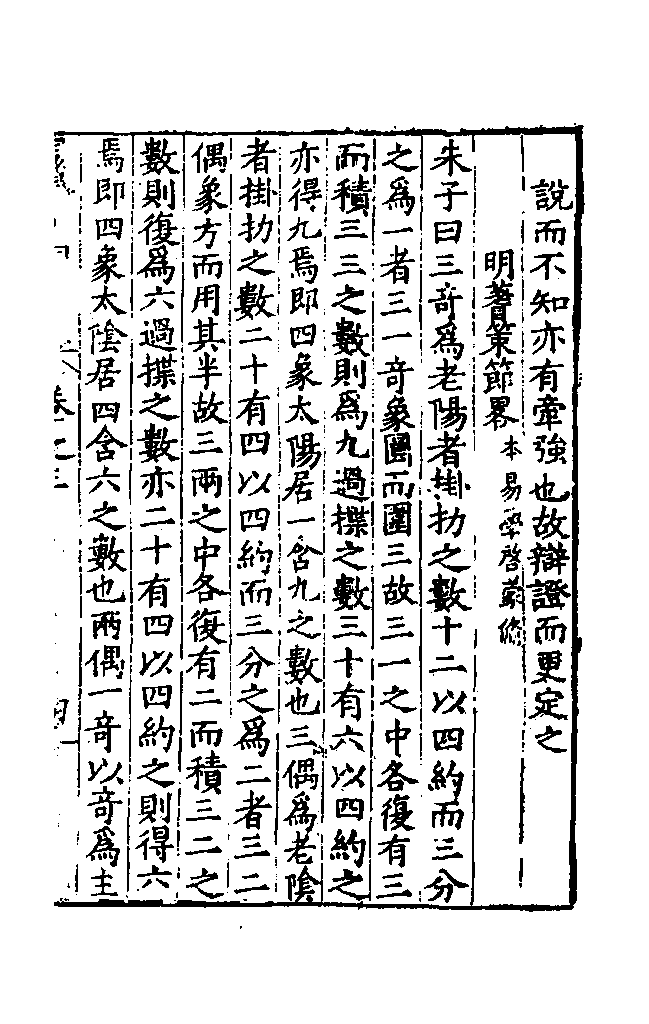 說而不知亦有牽強也故辯證而更定之
明蓍策節畧本易學啓蒙脩
朱子曰三竒為老陽者掛扐之數十二以四約而三分
之為一者三一奇象圎而圍三故三一之中各復有三
而積三三之數則為九過揲之數三十有六以四約之
亦得九焉即四象太陽居一含九之數也三偶為老陰
者掛扐之數二十有四以四約而三分之為二者三二
偶象方而用其半故三兩之中各復有二而積三二之
數則復為六過揲之數亦二十有四以四約之則得六
焉即四象太陰居四含六之數也兩偶一竒以竒為主
卷之三